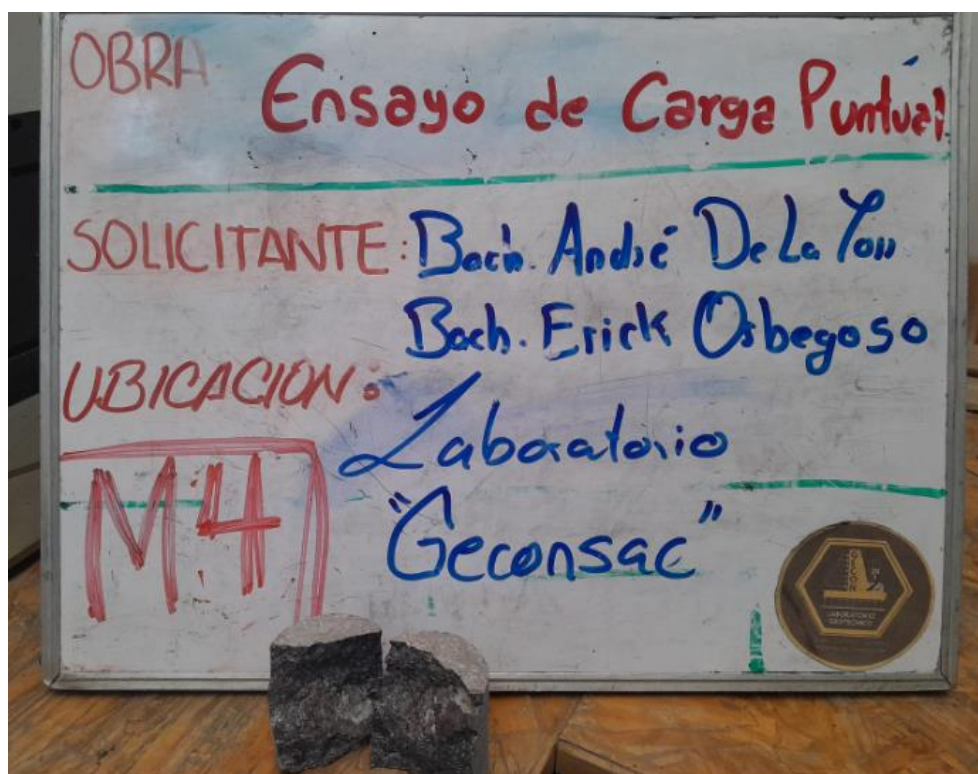 OBRA Ensayo de Carga Puntual
SOLICITANTE: Bach. André De La
Bach. Erick Orbegoso
UBICACION:
Laboratorio
M.4
"Geconsac"
LABORATORIO
GEOTECNICO